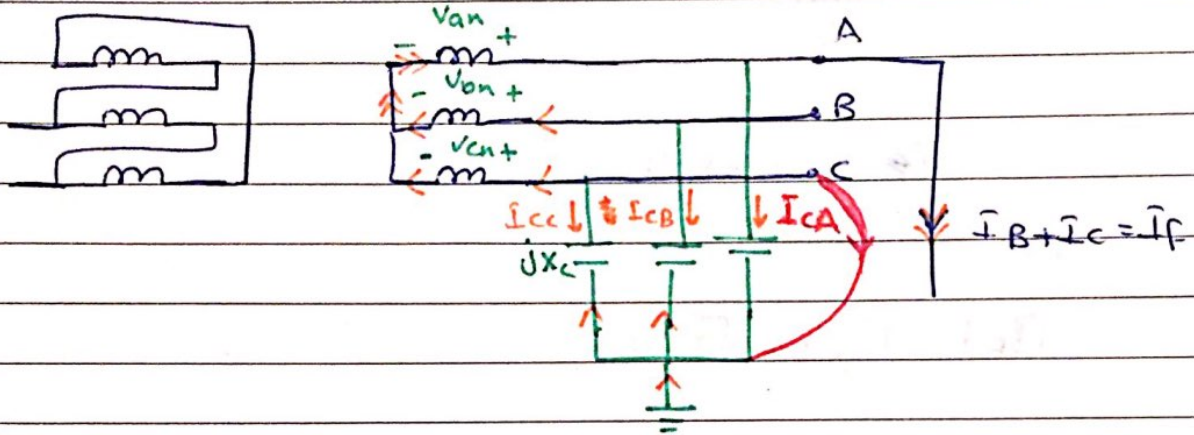 Van
- +
A
Vbn
- +
B
Vcn
- +
C
Icc ICB ICA
jXc
IB+IC=If